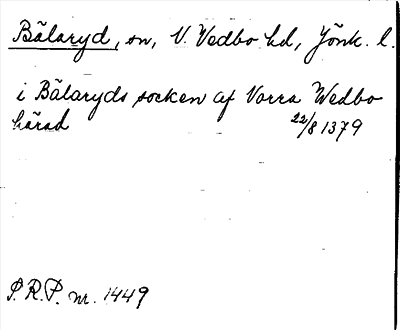 Bälaryd, sn, V. Vedbo hd, Jönk. l.
i Bälaryds socken af Vorra Wedbo
härad 22/8 1379
S.R.P. nr. 1449